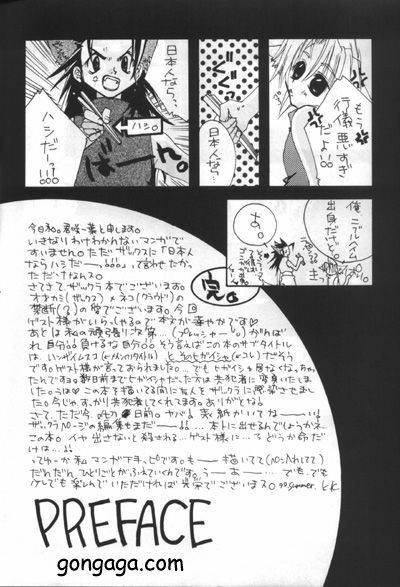 もう
行儀悪すぎ
だよい!!
ぐぐっ
日本人なら…
日本人なら…
ハシだーっ!!
ハシ。
ばーん。
俺ニブルヘイム
出身だけど。
す。
完。
今日和。君咲一葉と申します。
いきなりわけわかんないマンガで
すいません。ただザックスに「日本人
ならハシだーっ!!」って言わせたかっ
ただけなんス。
さてさて、ザックラ本でございます。
オオカミ(ザックス)×ネコ(クラウド)の
禁断(?)の愛でございます。今回
ゲスト様がいらっしゃるので本文が華やかです♡
あとは私の頑張り次第…(プレッシャーっ)がんば
れ自分!!負けるな自分!!そう言えばこの本のサブタイトル
は、
とそのヒガイシャ(ヒコレ)だそう
です。ゲスト様が言っておられました。…でもヒガイシャ居なくなっちゃっ
たんですョ。数日前までヒガイシャだった方は共犯者に変身いたしま
した。うふ♡この本を描いてる間に
ザックラに感染させまし
した。今じゃすっかり共犯者してくれてます。ありがとなる!
さて、ただ今、
日前。ヤバイ!表紙がかいてねーーい!!
ザックラページの編集もまだーー!!…本トに出るんでしょうかネ
この本。イヤ出さないと殺される…ゲスト様に…。どうか命だけ
は…!!
ってゆーか私マンガ下手っピです。もー描いてて
だんだんひとりごとがふえていくんです。うーあー…。でも、でも
でも楽しんでいただければ光栄でございまス。
PREFACE
gongaga.com